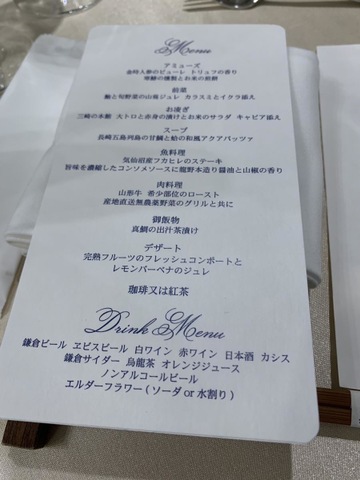 Menu
アミューズ
金時人参のピューレ トリュフの香り
前菜
鮑と旬野菜の山葵ジュレ カラスミとイクラ添え
お凌ぎ
三崎の本鮪 大トロと赤身の漬けとお米のサラダ キャビア添え
スープ
長崎五島列島の甘鯛と蛤の和風アクアパッツァ
魚料理
気仙沼産フカヒレのステーキ
旨味を濃縮したコンソメソースに龍野本造り醤油と山椒の香り
肉料理
山形牛 希少部位のロースト
産地直送無農薬野菜のグリルと共に
御飯物
真鯛の出汁茶漬け
デザート
完熟フルーツのフレッシュコンポートと
レモンバーベナのジュレ
珈琲又は紅茶
Drink Menu
鎌倉ビール ヱビスビール 白ワイン 赤ワイン 日本酒 カシス
鎌倉サイダー 烏龍茶 オレンジジュース
ノンアルコールビール
エルダーフラワー(ソーダor水割り)